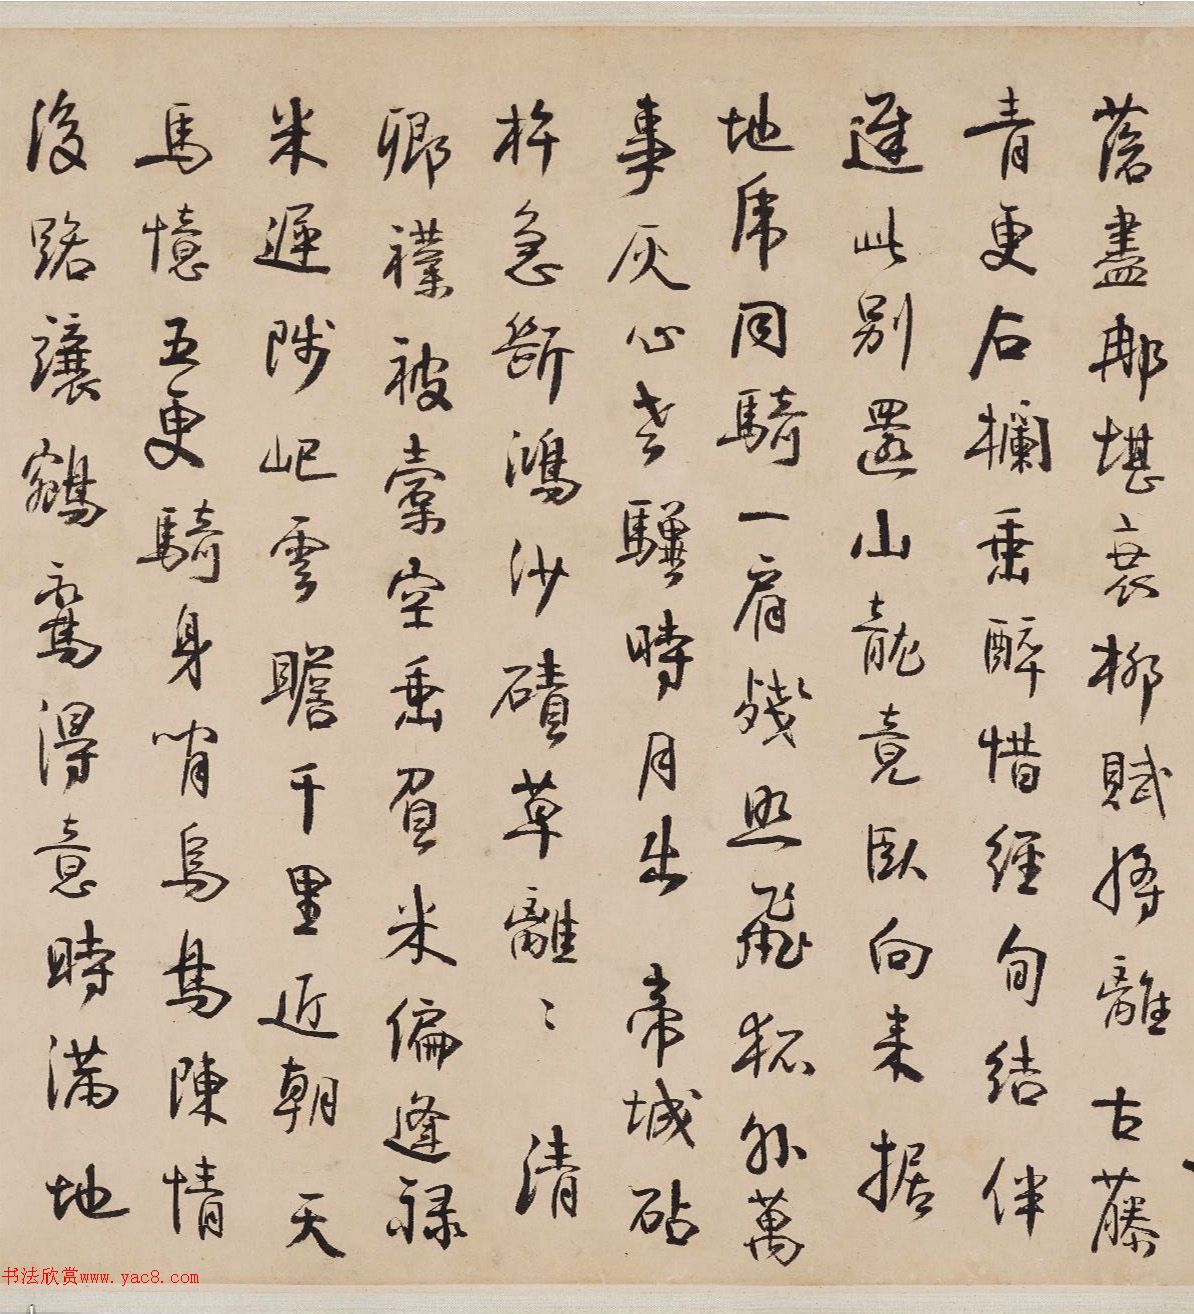 蒼盡那堪衰柳賦將離古藤
青更石欄垂醉惜經旬結伴
遲此別還山龍竟臥向來据
地虎同騎一肩殘照飛狐外萬
事灰心老驥時月出帝城砧
杵急斷鴻沙磧草離〻清
卿襆被橐空垂負米偏逢祿
米遲陟屺雲瞻千里近朝天
馬憶五更騎身肖烏鳥陳情
後路讓鵷鶱得意時滿地
书法欣赏www.yac8.com